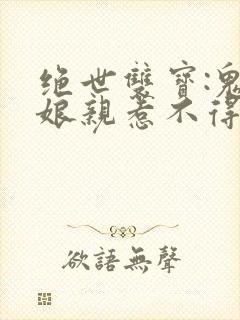 绝世雙寶:鬼
娘親惹不得
欲語無聲